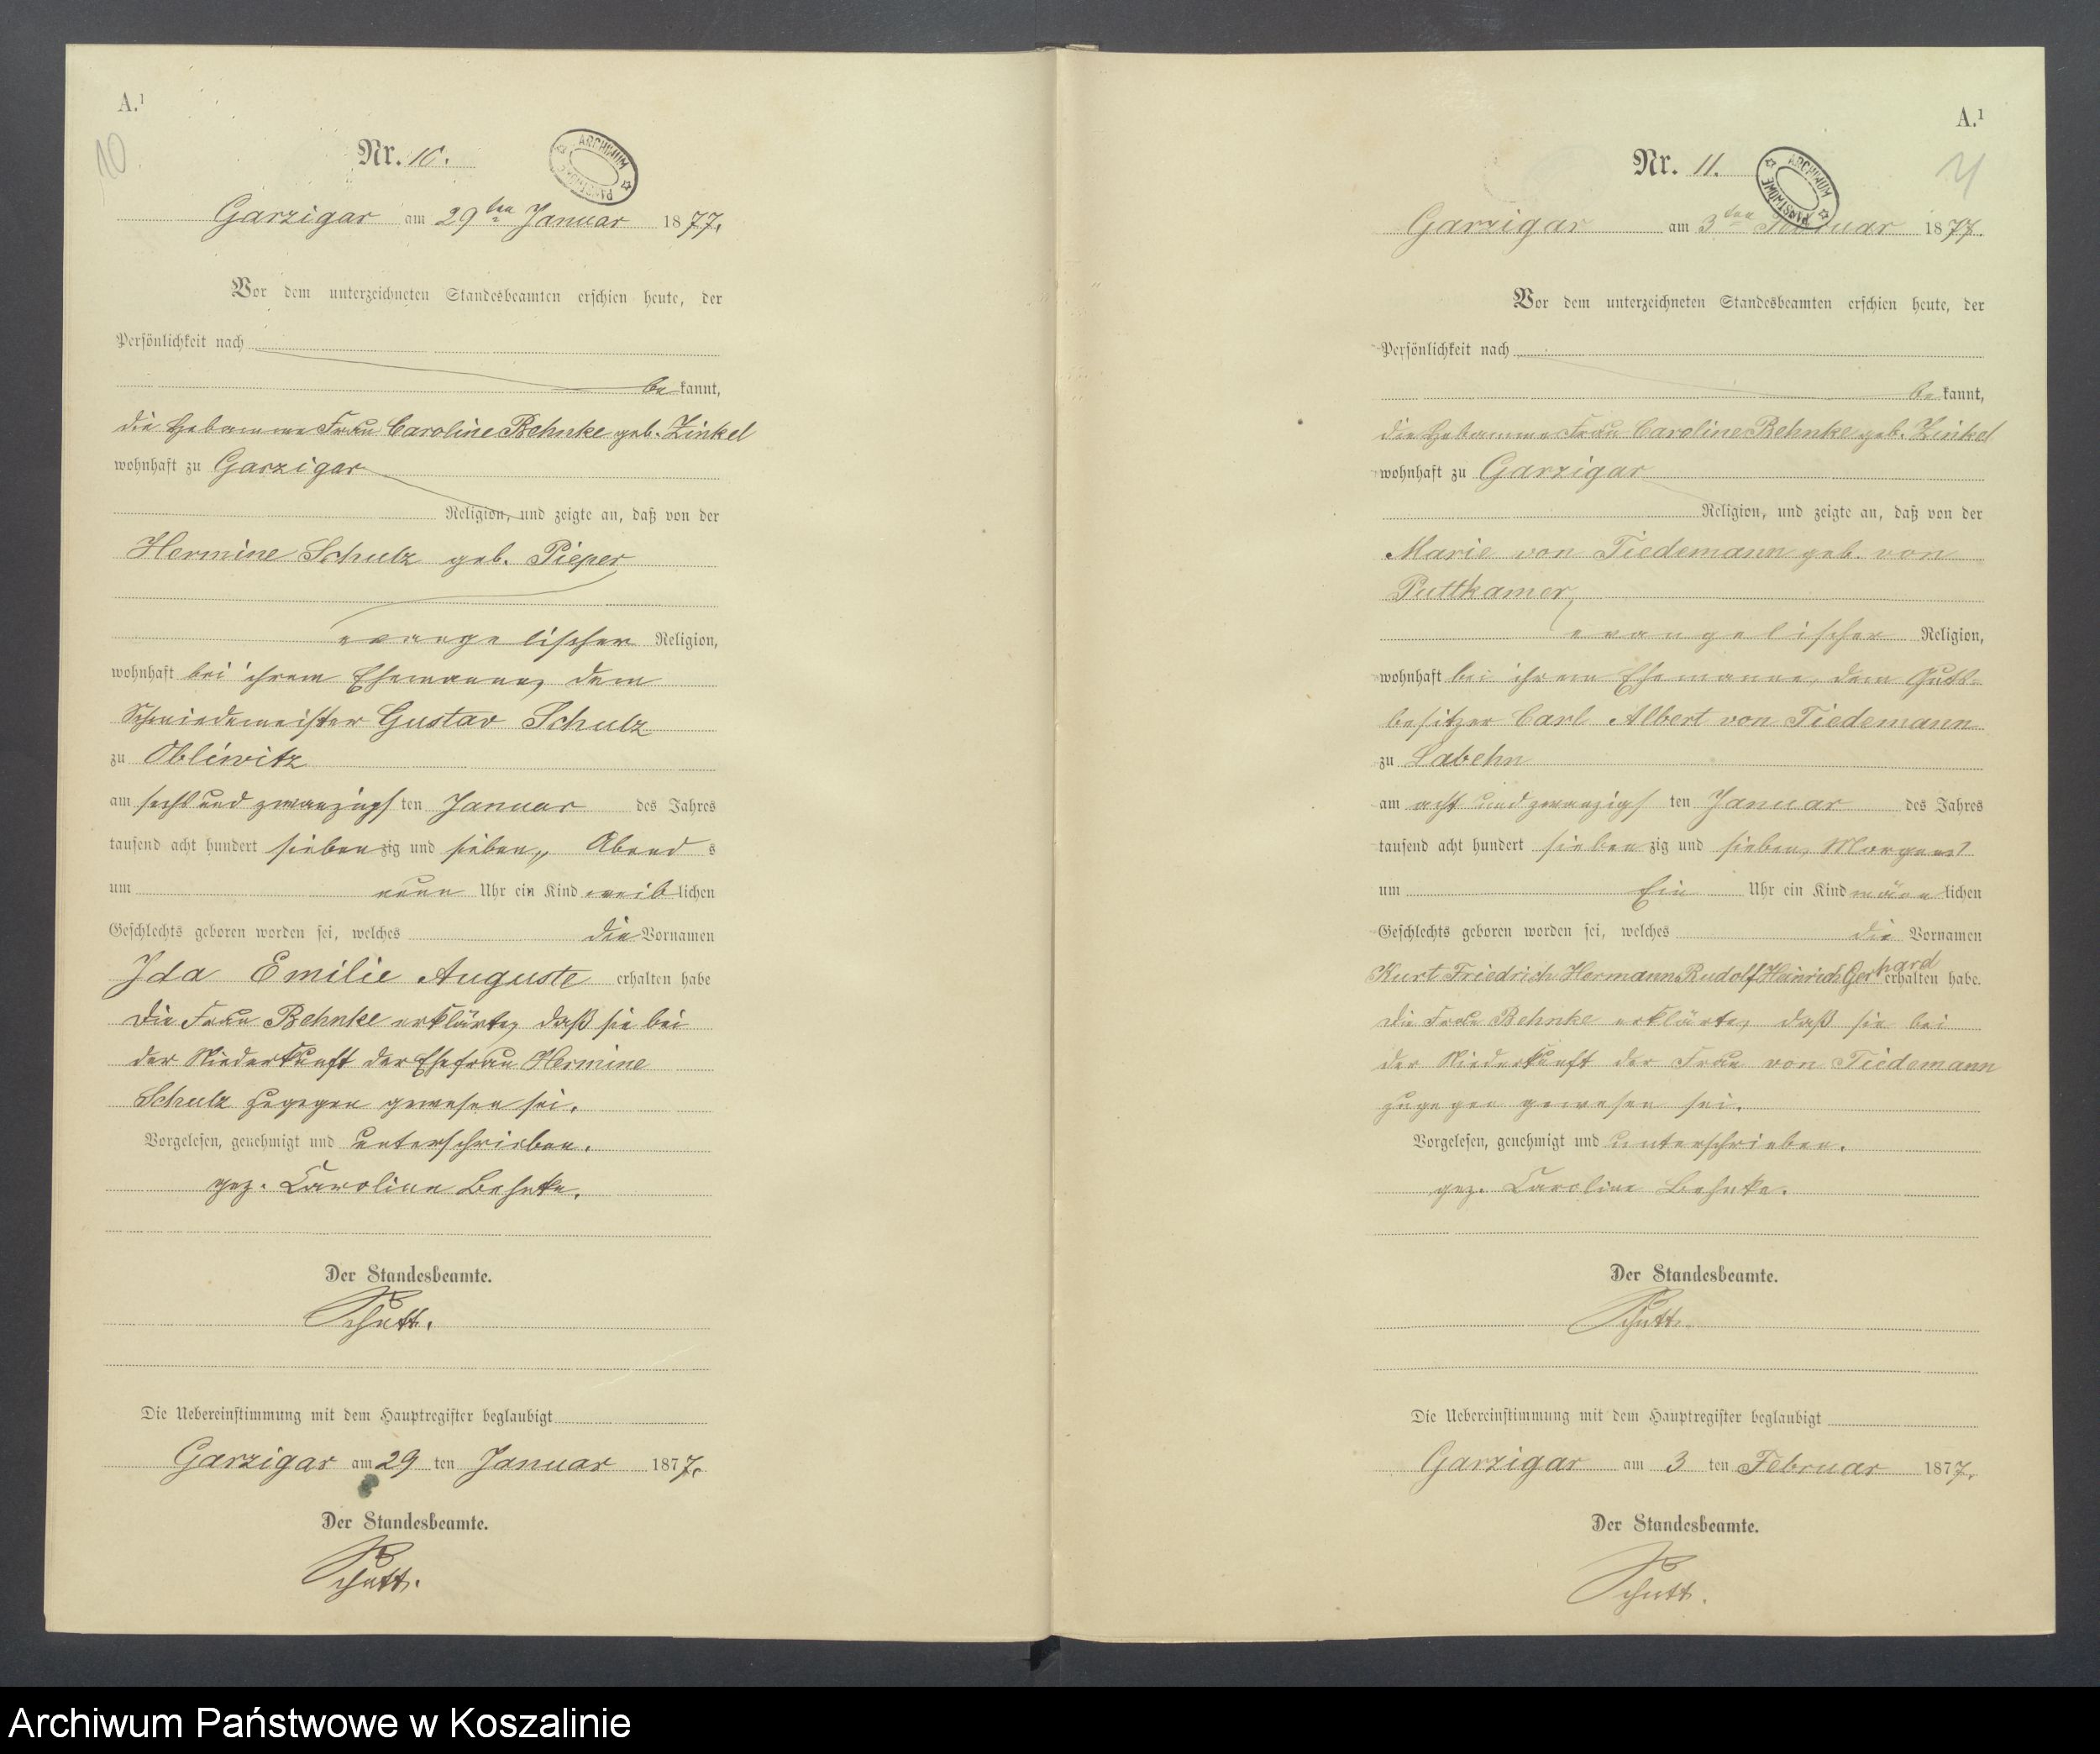 A.¹
10
Nr. 10.
ARCHIWUM PAŃSTWOWE
Garzigar am 29ten Januar 1877.
Vor dem unterzeichneten Standesbeamten erschien heute, der
Persönlichkeit nach
bekannt,
die Hebamme Frau Caroline Behnke geb. Zinkel
wohnhaft zu Garzigar
Religion, und zeigte an, daß von der
Hermine Schulz geb. Pieper
evangelischer Religion,
wohnhaft bei ihrem Ehemanne, dem
Schmiedemeister Gustav Schulz
zu Obliwitz
am sechs und zwanzigsten Januar des Jahres
tausend acht hundert siebenzig und sieben, Abends
um neun Uhr ein Kind weiblichen
Geschlechts geboren worden sei, welches die Vornamen
Ida Emilie Auguste erhalten habe
Die Frau Behnke erklärte, daß sie bei
der Niederkunft der Ehefrau Hermine
Schulz zugegen gewesen sei.
Vorgelesen, genehmigt und unterschrieben.
gez. Caroline Behnke.
Der Standesbeamte.
Schutt.
Die Uebereinstimmung mit dem Hauptregister beglaubigt
Garzigar am 29 ten Januar 1877.
Der Standesbeamte.
Schutt.
A.¹
11
Nr. 11.
ARCHIWUM PAŃSTWOWE
Garzigar am 3ten Februar 1877.
Vor dem unterzeichneten Standesbeamten erschien heute, der
Persönlichkeit nach
bekannt,
die Hebamme Frau Caroline Behnke geb. Zinkel
wohnhaft zu Garzigar
Religion, und zeigte an, daß von der
Marie von Tiedemann geb. von
Puttkamer,
evangelischer Religion,
wohnhaft bei ihrem Ehemanne, dem Guts-
besitzer Carl Albert von Tiedemann
zu Labehn
am acht und zwanzigsten Januar des Jahres
tausend acht hundert siebenzig und sieben, Morgens
um Ein Uhr ein Kind männlichen
Geschlechts geboren worden sei, welches die Vornamen
Kurt Friedrich Hermann Rudolf Heinrich Gerhard erhalten habe.
Die Frau Behnke erklärte, daß sie bei
der Niederkunft der Frau von Tiedemann
zugegen gewesen sei.
Vorgelesen, genehmigt und unterschrieben.
gez. Caroline Behnke.
Der Standesbeamte.
Schutt.
Die Uebereinstimmung mit dem Hauptregister beglaubigt
Garzigar am 3 ten Februar 1877.
Der Standesbeamte.
Schutt.
Archiwum Państwowe w Koszalinie